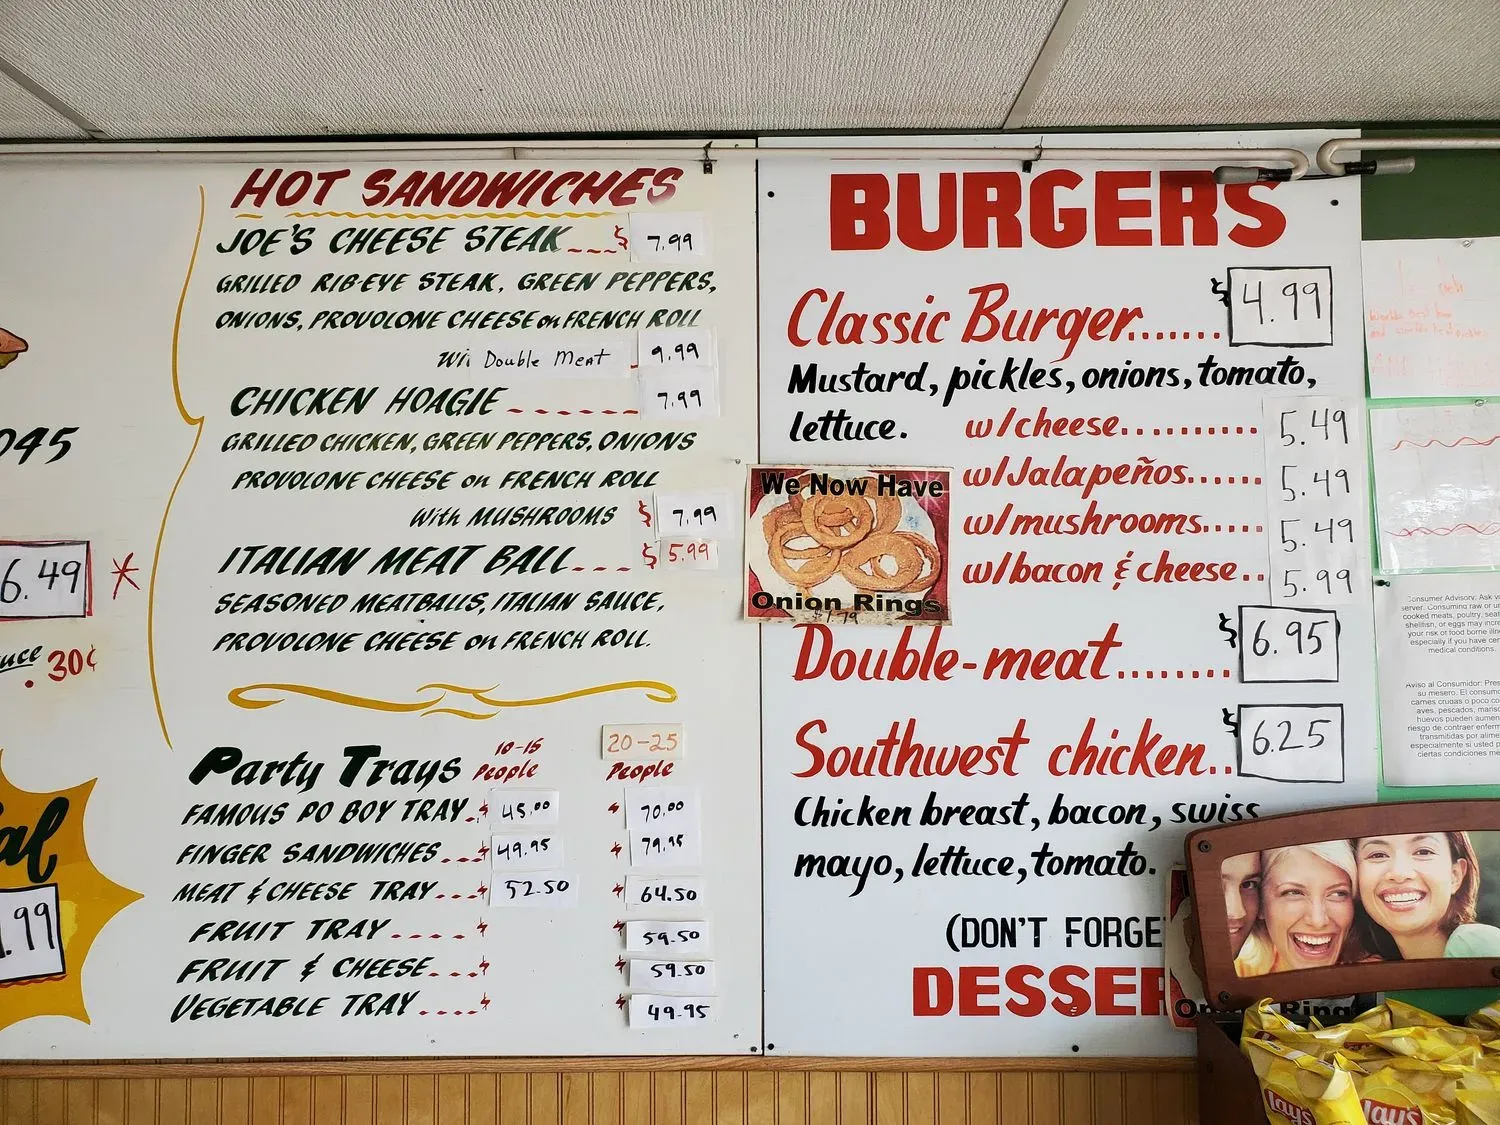 045
6.49
30¢
HOT SANDWICHES
JOE'S CHEESE STEAK $ 7.99
GRILLED RIB-EYE STEAK, GREEN PEPPERS,
ONIONS, PROVOLONE CHEESE on FRENCH ROLL
Wi Double Meat 9.99
CHICKEN HOAGIE 7.99
GRILLED CHICKEN, GREEN PEPPERS, ONIONS
PROVOLONE CHEESE on FRENCH ROLL
With MUSHROOMS $ 7.99
ITALIAN MEAT BALL $ 5.99
SEASONED MEATBALLS, ITALIAN SAUCE,
PROVOLONE CHEESE on FRENCH ROLL.
Party Trays 10-15 People 20-25 People
FAMOUS PO BOY TRAY $ 45.00 $ 70.00
FINGER SANDWICHES $ 49.95 $ 79.95
MEAT & CHEESE TRAY $ 52.50 $ 64.50
FRUIT TRAY $ $ 59.50
FRUIT & CHEESE $ $ 59.50
VEGETABLE TRAY $ $ 49.95
BURGERS
Classic Burger $ 4.99
Mustard, pickles, onions, tomato,
lettuce. w/cheese 5.49
w/Jalapeños 5.49
w/mushrooms 5.49
w/bacon & cheese 5.99
We Now Have
Onion Rings
Double-meat $ 6.95
Southwest chicken $ 6.25
Chicken breast, bacon, swiss
mayo, lettuce, tomato.
(DON'T FORGE
DESSER
Rings
Lay's
Lay's
Consumer Advisory: Ask
server. Consuming raw or
cooked meats, poultry,
shellfish, or eggs may
your risk of food borne
especially if you have
medical conditions.
Aviso al Consumidor:
su mesero. El
carnes crudas o poco
aves, pescados,
huevos pueden
riesgo de contraer
transmitidas por
especialmente si usted
ciertas condiciones